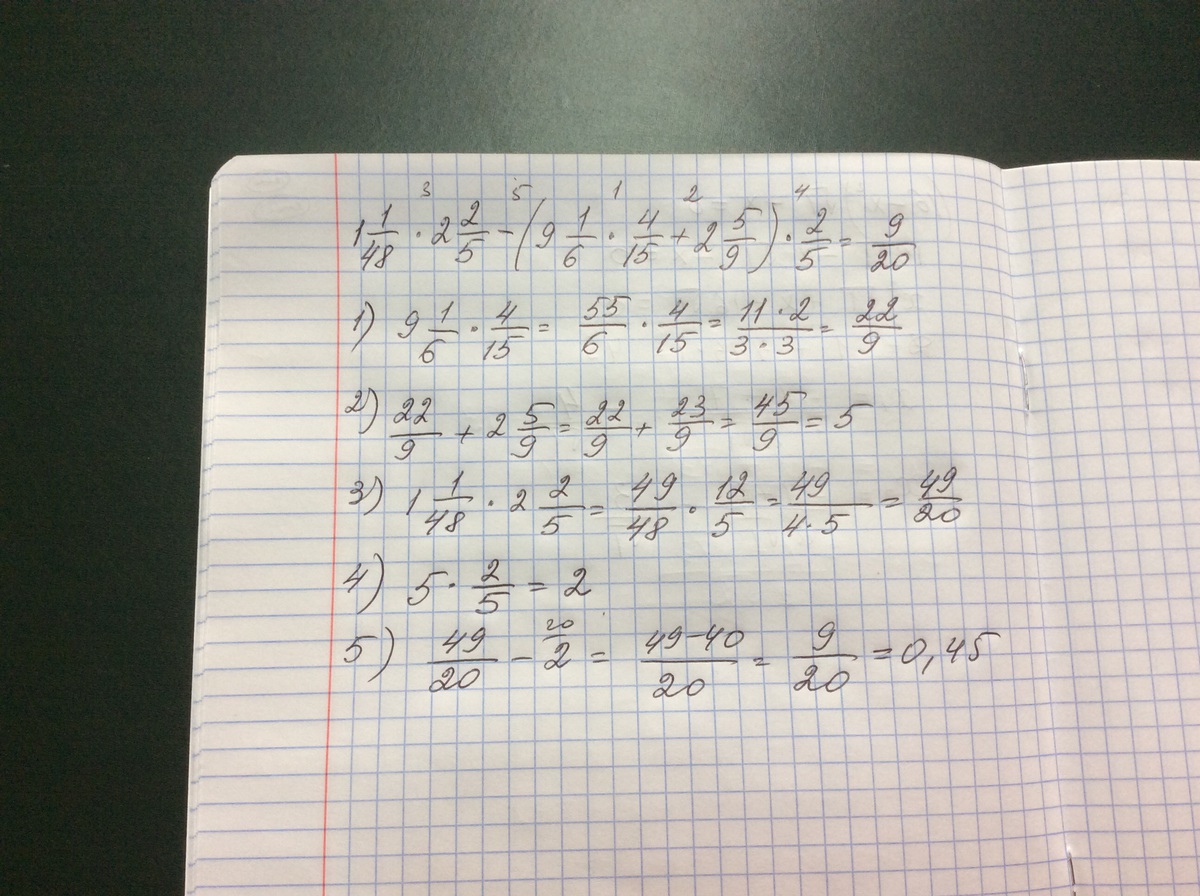 3 5 1 2 4
1 1/48 · 2 2/5 - (9 1/6 · 4/15 + 2 5/9) · 2/5 = 9/20
1) 9 1/6 · 4/15 = 55/6 · 4/15 = 11 · 2/3 · 3 = 22/9
2) 22/9 + 2 5/9 = 22/9 + 23/9 = 45/9 = 5
3) 1 1/48 · 2 2/5 = 49/48 · 12/5 = 49/4 · 5 = 49/20
4) 5 · 2/5 = 2
20
5) 49/20 - 2 = 49-40/20 = 9/20 = 0,45